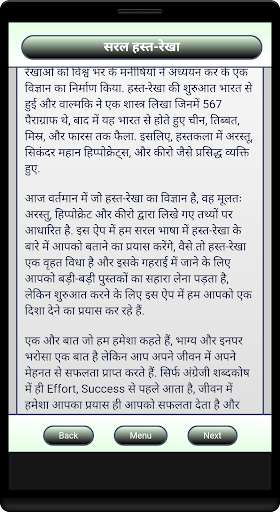 सरल हस्त-रेखा
रेखाओं को विश्व भर के मनीषियों ने अध्ययन कर के एक
विज्ञान का निर्माण किया. हस्त-रेखा की शुरुआत भारत से
हुई और वाल्मकि ने एक शास्त्र लिखा जिनमें 567
पैराग्राफ थे, बाद में यह भारत से होते हुए चीन, तिब्बत,
मिस्र, और फारस तक फैला. इसलिए, हस्तकला में अरस्तू,
सिकंदर महान हिप्पोक्रेट्स, और कीरो जैसे प्रसिद्ध व्यक्ति
हुए.
आज वर्तमान में जो हस्त-रेखा का विज्ञान है, वह मूलतः
अरस्तु, हिप्पोक्रेट और कीरो द्वारा लिखे गए तथ्यों पर
आधारित है. इस ऐप में हम सरल भाषा में हस्त-रेखा के
बारे में आपको बताने का प्रयास करेंगे, वैसे तो हस्त-रेखा
एक वृहत विधा है और इसके महराई में जाने के लिए
आपको बड़ी-बड़ी पुस्तकों का सहारा लेना पड़ता है,
लेकिन शुरुआत करने के लिए इस ऐप में हम आपको एक
दिशा देने का प्रयास कर रहे हैं.
एक और बात जो हम हमेशा कहते हैं, भाग्य और इनपर
भरोसा एक बात है लेकिन आप अपने जीवन में अपने
मेहनत से सफलता प्राप्त करते हैं. सिर्फ अंग्रेजी शब्दकोष
में ही Effort, Success से पहले आता है, जीवन में
हमेशा आपका प्रयास ही आपको सफलता देता है और
Back
Menu
Next